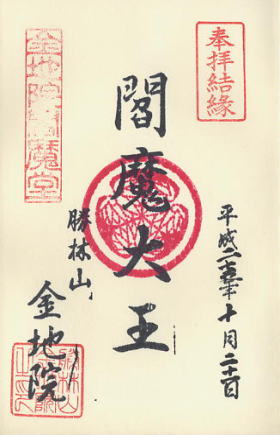 奉拝結縁
平成 年十月 日
閻魔大王
勝林山
金地院
金地院閻魔堂